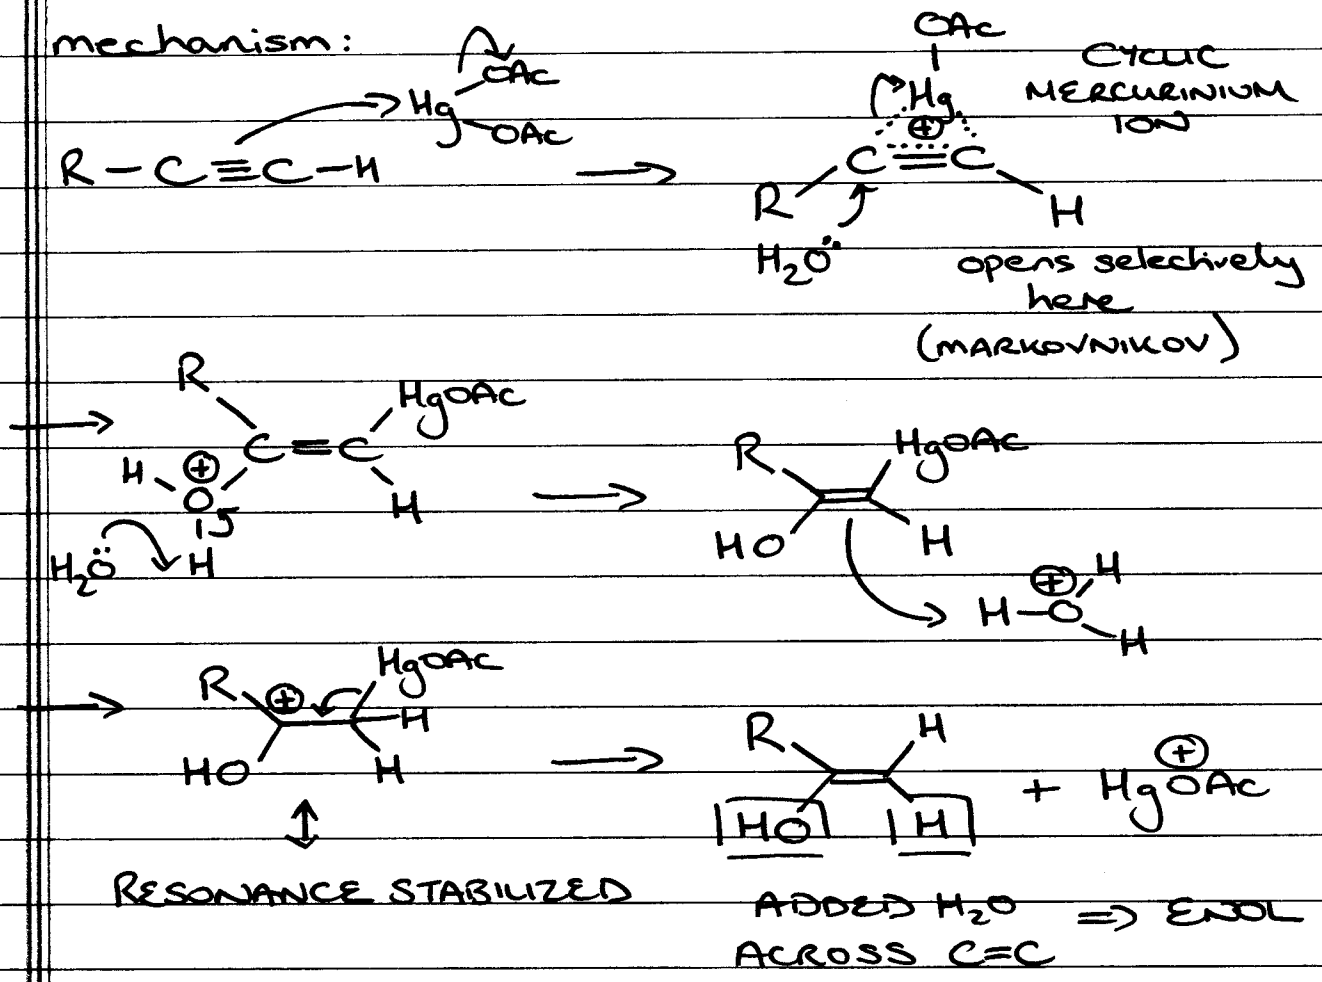 mechanism:
OAc
Hg
OAc
R-C≡C-H
OAc
Hg
⊕
C≡C
R
H
H₂Ö
CYCLIC
MERCURINIUM
ION
opens selectively
here
(MARKOVNIKOV)
R
HgOAc
C=C
H
⊕
O
H
H₂Ö
H
R
HgOAc
HO
H
⊕
H
H-O
H
R
⊕
HgOAc
H
HO
H
RESONANCE STABILIZED
R
H
HO
H
+ HgOAc
⊕
ADDED H₂O ⇒ ENOL
ACROSS C=C